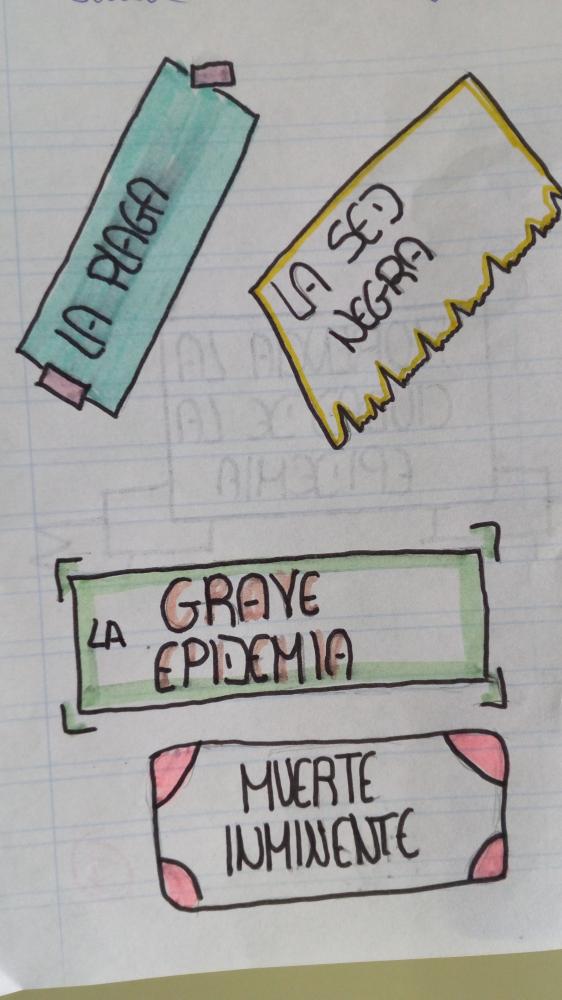 LA PLAGA
LA SED
NEGRA
LA GRAVE
EPIDEMIA
MUERTE
INMINENTE